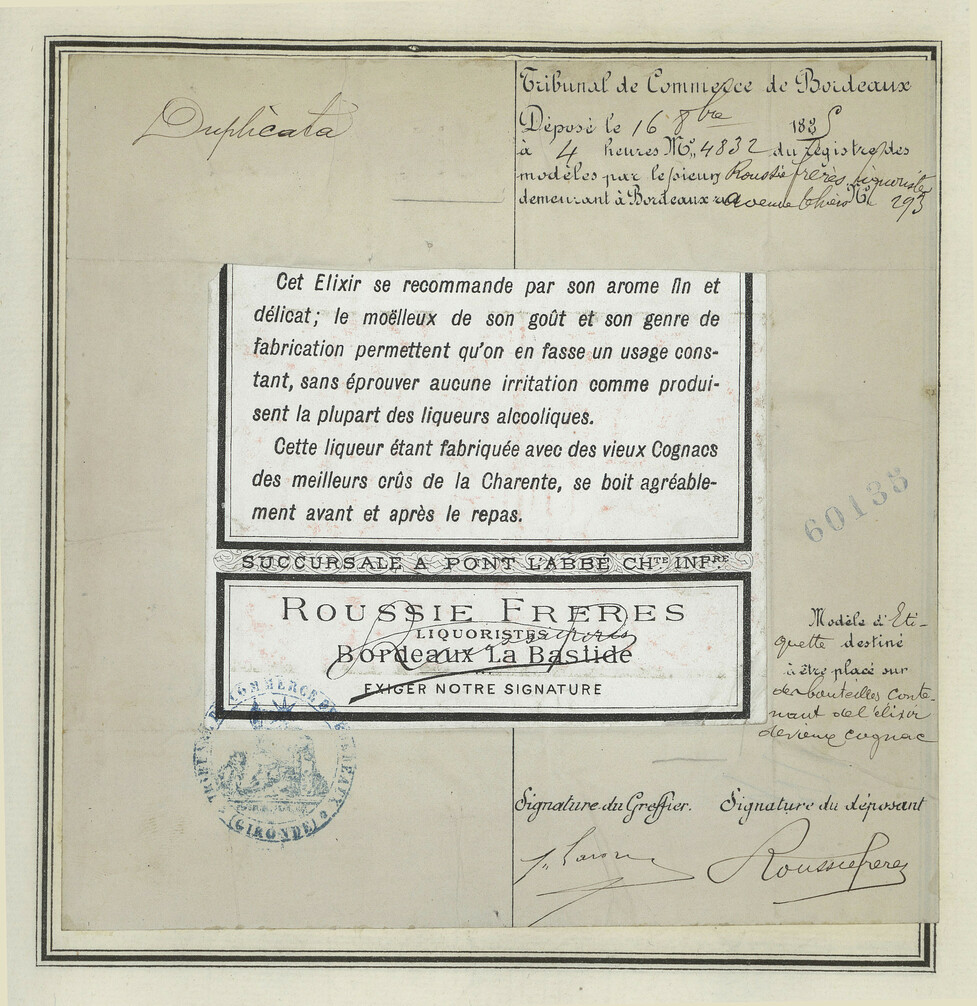 Duplicata
Tribunal de Commerce de Bordeaux
Déposé le 16 8bre 1885
à 4 heures No. 4832 du registre des
modèles par le sieurs Roussie frères liquoristes
demeurant à Bordeaux avenue Thiers No 293
Cet Elixir se recommande par son arome fin et
délicat; le moëlleux de son goût et son genre de
fabrication permettent qu'on en fasse un usage cons-
tant, sans éprouver aucune irritation comme produi-
sent la plupart des liqueurs alcooliques.
Cette liqueur étant fabriquée avec des vieux Cognacs
des meilleurs crûs de la Charente, se boit agréable-
ment avant et après le repas.
SUCCURSALE A PONT L'ABBÉ CHTE INFRE
ROUSSIE FRERES
LIQUORISTES
Bordeaux La Bastide
EXIGER NOTRE SIGNATURE
Roussie frères
60135
Modèle d'Eti-
quette destiné
à être placé sur
des bouteilles conte-
nant de l'élixir
de vieux cognac
TRIBUNAL DE COMMERCE DE BORDEAUX
(GIRONDE)
Signature du Greffier. Signature du déposant
Roussie freres